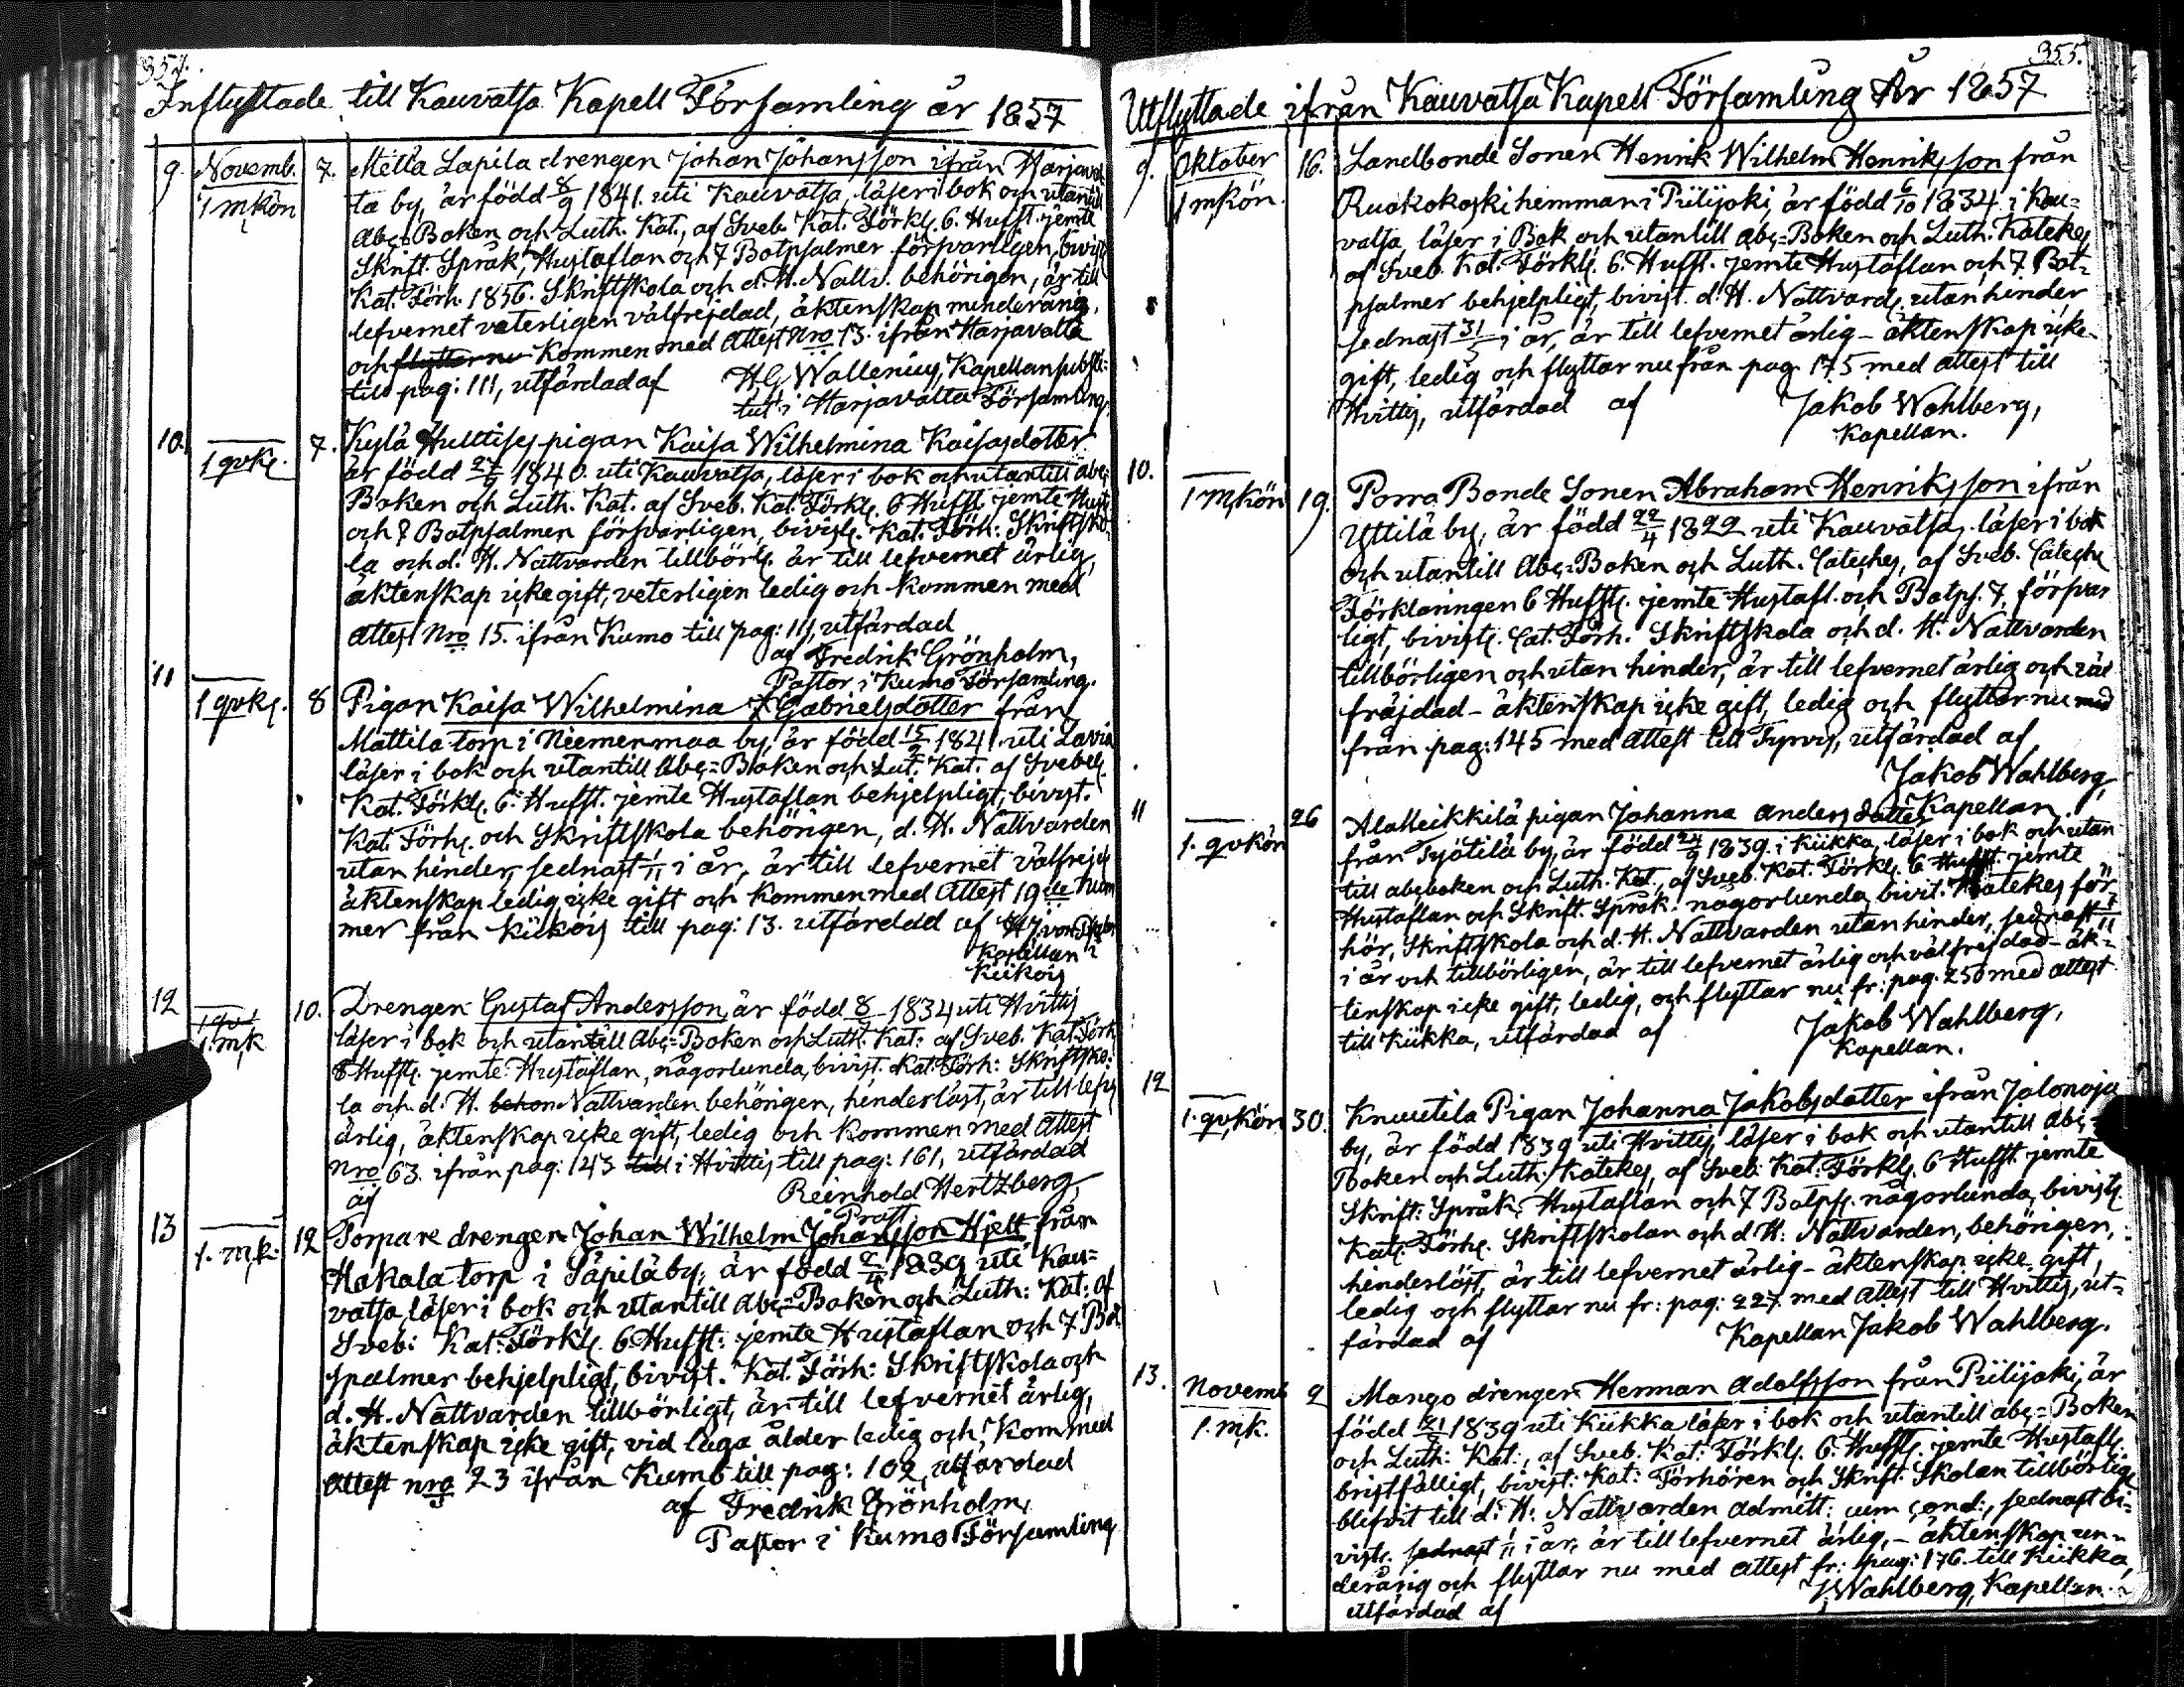 354.
Inflyttade till Kauvatsa Kapell Församling år 1857
9. Novemb. 1 mkön 7. Mella Lapila drengen Johan Johansson ifrån Harjaval
ta by, är född 8/9 1841. uti Kauvatsa, läser i bok och utantill
Abc=Boken och Luth. Kat., af Sveb. Kat. Förkl. 6. Hufst. jemte
Skrift. Språk, Hustaflan och 7 Botpsalmer försvarligen, bivist
Kat. Förh. 1856. Skriftskola och d. H. Nattv. behörigen, är till
lefvernet veterligen välfrejdad, äktenskap minderårig,
och flyttar nu kommen med Attest Nro 13. ifrån Harjavalta
till pag: 111, utfärdad af H G Wallenius, Kapellan substi=
tut i Harjavalta Församling.
10. 1 qvk. 7. Kyslä Hultis pigan Kaisa Wilhelmina Kaisasdotter
är född 27/9 1840. uti Kauvatsa, läser i bok och utantill abc=
Boken och Luth. Kat. af Sveb. Kat. Förkl. 6 Hufst. jemte Hust.
och 7 Botpsalmer försvarligen, bivist. Kat. Förh: Skriftsko=
la och d. H. Nattvarden tillbörl. är till lefvernet ärlig,
äktenskap icke gift, veterligen ledig och kommen med
attest Nro 15. ifrån Kumo till pag: 111, utfärdad
af Fredrik Grönholm,
Pastor i Kumo Församling.
11 1 qvk. 8 Pigan Kaisa Wilhelmina Gabrielsdotter från
Mattila torp i Niemenmaa by, är född 15/2 1841. uti Lavia
läser i bok och utantill Abc=Boken och Lut. Kat. af Svebel.
Kat. Förkl. 6. Hufst. jemte Hustaflan behjelpligt, bivist.
Kat. Förh. och Skriftskola behörigen, d. H. Nattvarden
utan hinder, sednast 1/11 i år, är till lefvernet välfrejd.
äktenskap ledig icke gift och kommen med Attest 19de num
mer från Kiikois till pag: 13. utfärdad af
Kapellan i
Kiikois
12 1 qv 1 1. mk 10. Drengen Gustaf Andersson, är född 8/ 1834 uti Hvittis
läser i bok och utantill Abc=Boken och Luth. Kat: af Sveb. Kat. Förk.
6 Hufst. jemte Hustaflan, någorlunda, bivist. Kat. Förh: Skriftsko:
la och d. H. behori Nattvarden behörigen, hinderslöst, är till lefv.
ärlig, äktenskap icke gift, ledig och kommen med Attest
Nro 63. ifrån pag: 143 till i Hvittis till pag: 161, utfärdad
af Reinhold Hertzberg,
Prost
13 1. mk. 12 Torpare drengen Johan Wilhelm Johansson Hjelt från
Hakala torp i Säpilä by, är född 2/4 1839 uti Kau=
vatsa, läser i bok och utantill Abc=Boken och Luth: Kat: af
Sveb: Kat: Förkl. 6 Hufst: jemte Hustaflan och 7 Bot
spalmer behjelpligt, bivist. Kat. Förh: Skriftskola och
d. H. Nattvarden tillbörligt, är till lefvernet ärlig,
äktenskap icke gift, vid laga ålder ledig och, kom med
attest nro 23 ifrån Kumo till pag: 102, utfärdad
af Fredrik Grönholm,
Pastor i Kumo Församling
355.
Utflyttade ifrån Kauvatsa Kapell Församling År 1857
9. Oktober 1 mkön. 16. Landbonde Sonen Henrik Wilhelm Henriksson från
Ruokokoski hemman i Piilijoki, är född 6/10 1834. i Kau=
vatsa, läser i Bok och utantill abc=Boken och Luth. Katekes
af Sveb. Kat. Förkl. 6. Hufst. jemte Hustaflan och 7. Bot=
psalmer behjelpligt, bivist. d. H. Nattvard. utan hinder
sednast 31/5 i år, är till lefvernet ärlig – äktenskap icke
gift, ledig och flyttar nu från pag. 175 med attest till
Hvittis, utfärdad af Jakob Wahlberg,
Kapellan.
10. 1 mkön 19. Porra Bonde Sonen Abraham Henriksson ifrån
Yttilä by, är född 22/4 1822 uti Kauvatsa, läser i bok
och utantill Abc=Boken och Luth. Cateches, af Sveb. Catech.
Förklaringen 6 Hufst. jemte Hustafl. och Botps. 7. försvar
ligt, bivist. Cat. Förh. Skriftskola och d. H. Nattvarden
tillbörligen och utan hinder, är till lefvernet ärlig och väl
fräjdad – äktenskap icke gift, ledig och flyttar nu med
från pag: 145 med attest till Tyrvis, utfärdad af
Jakob Wahlberg,
Kapellan
11 1. qvkön 26 Alalleikkilä pigan Johanna Andersdotter
från Syötilä by, är född 24/9 1839. i Kiikka, läser i bok och utan
till abcboken och Luth. Kat., af Sveb. Kat. Förkl. 6 Hufst. jemte
Hustaflan och Skrift. Språk. någorlunda, bivit. Katekes för
hör, Skriftskola och d. H. Nattvarden utan hinder, sednast 1/11
i år och tillbörligen, är till lefvernet ärlig och välfrejdad – äk=
tenskap icke gift, ledig, och flyttar nu fr: pag. 250 med attest
till Kiikka, utfärdad af Jakob Wahlberg,
Kapellan.
12 1. qvkön 30. Knuutila Pigan Johanna Jakobsdotter ifrån Jalonoja
by, är född 1839 uti Hvittis, läser i bok och utantill Abc=
Boken och Luth: Katekes, af Sveb: Kat. Förkl. 6 Hufst. jemte
Skrift: Språk, Hustaflan och 7 Botps. någorlunda, bivist.
Kat. Förh. Skriftskolan och d. H. Nattvarden, behörigen,
hinderslöst, är till lefvernet ärlig – äktenskap icke gift,
ledig och flyttar nu fr: pag: 227. med attest till Hvittis, ut=
färdad af Kapellan Jakob Wahlberg.
13. Novemb 1. mk. 2 Mango drengen Herman Adolfsson från Piilijoki, är
född 21/2 1839 uti Kiikka läser i bok och utantill abc=Boken
och Luth: Kat:, af Sveb. Kat: Förkl. 6. Hufst. jemte Hustafl.
bristfälligt, bivist: Kat: Förhören och Skrift. Skolan tillbörlig
blifvit till d. H. Nattvarden admitt: cum cond:, sednast bi=
vist. sednast 1/11 i år, är till lefvernet ärlig, – äktenskap un=
derårig och flyttar nu med attest fr: pag: 176. till Kiikka,
utfärdad af J Wahlberg, Kapellan.